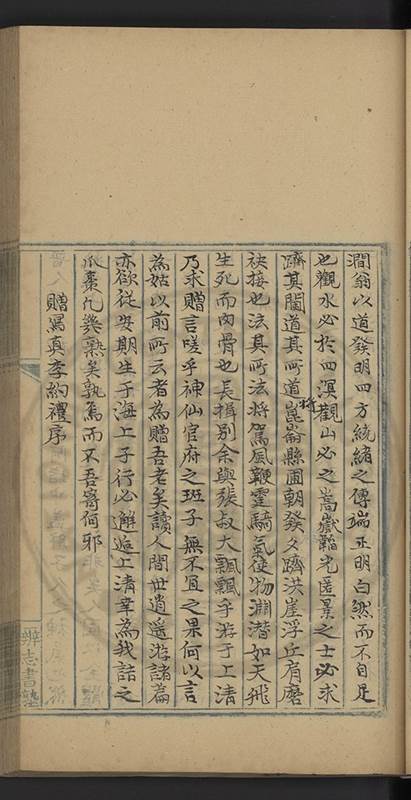 澗翁以道發明四方統緒之傳端正明白然而不自足
也觀水必於四溟觀山必之嵩嶽韜光匿景之士必求
躋其閫道其所道將崑崙縣圃朝發夕躋洪崖浮丘肩磨
袂接也法其所法將駕風鞭霆騎氣使物淵潛如天飛
生死而肉骨也長揖別余與張叔大飄飄乎游于上清
乃求贈言嗟乎神仙官府之班子無不宜之果何以言
為姑以前所云者為贈吾老矣讀人間世逍遥游諸篇
亦欲從安期生于海上子行必邂逅上清幸為我詰之
瓜棗凡幾熟矣孰為而不吾寄何邪
贈寫真李約禮序
辨志書塾